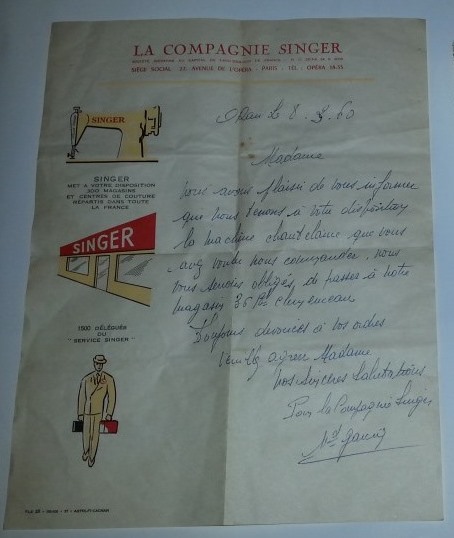 LA COMPAGNIE SINGER
SIÈGE SOCIAL
AVENUE DE L'OPÉRA - PARIS - TÉL. OPÉRA
Oran le 8
60
SINGER
Madame
SINGER
MET A VOTRE DISPOSITION
300 MAGASINS
ET CENTRES DE COUTURE
RÉPARTIS DANS TOUTE
LA FRANCE
Nous avons plaisir de vous informer
que nous tenons à votre disposition
la machine chant claire que vous
avez voulu nous commander. nous
vous serions obligés de passer à notre
magasin 36 Bd Clemenceau
SINGER
Toujours dévoués à vos ordres
Veuillez agréer Madame
nos sincères Salutations
Pour la Compagnie Singer
1500 DÉLÉGUÉS
DU
"SERVICE SINGER"